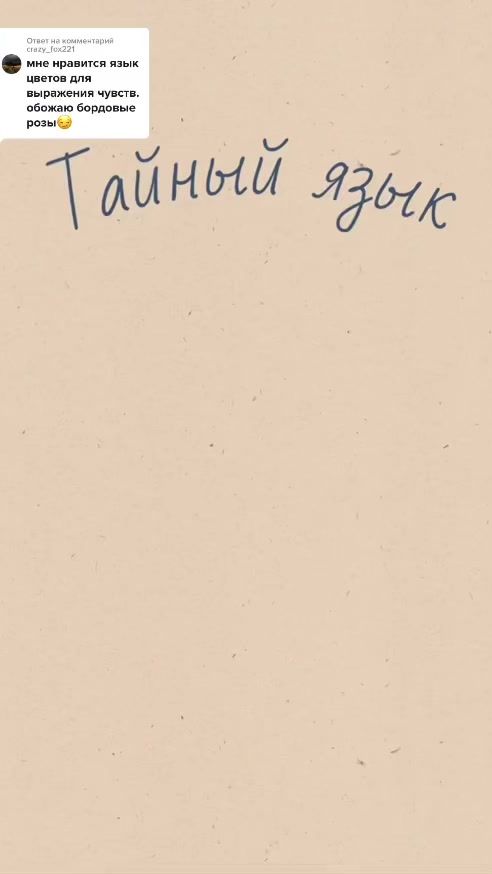 Ответ на комментарий
crazy_fox221
мне нравится язык
цветов для
выражения чувств.
обожаю бордовые
розы😏
Тайный язык